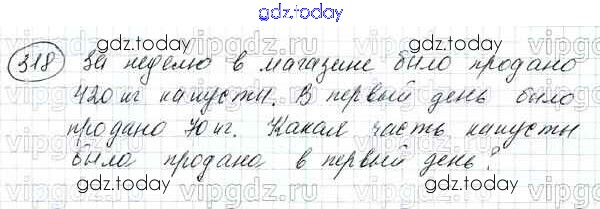 gdz.today
318 За неделю в магазине было продано
gdz.today
420 кг капусты. В первый день было
продано 70 кг. Какая часть капусты
gdz.today
была продана в первый день?
gdz.today